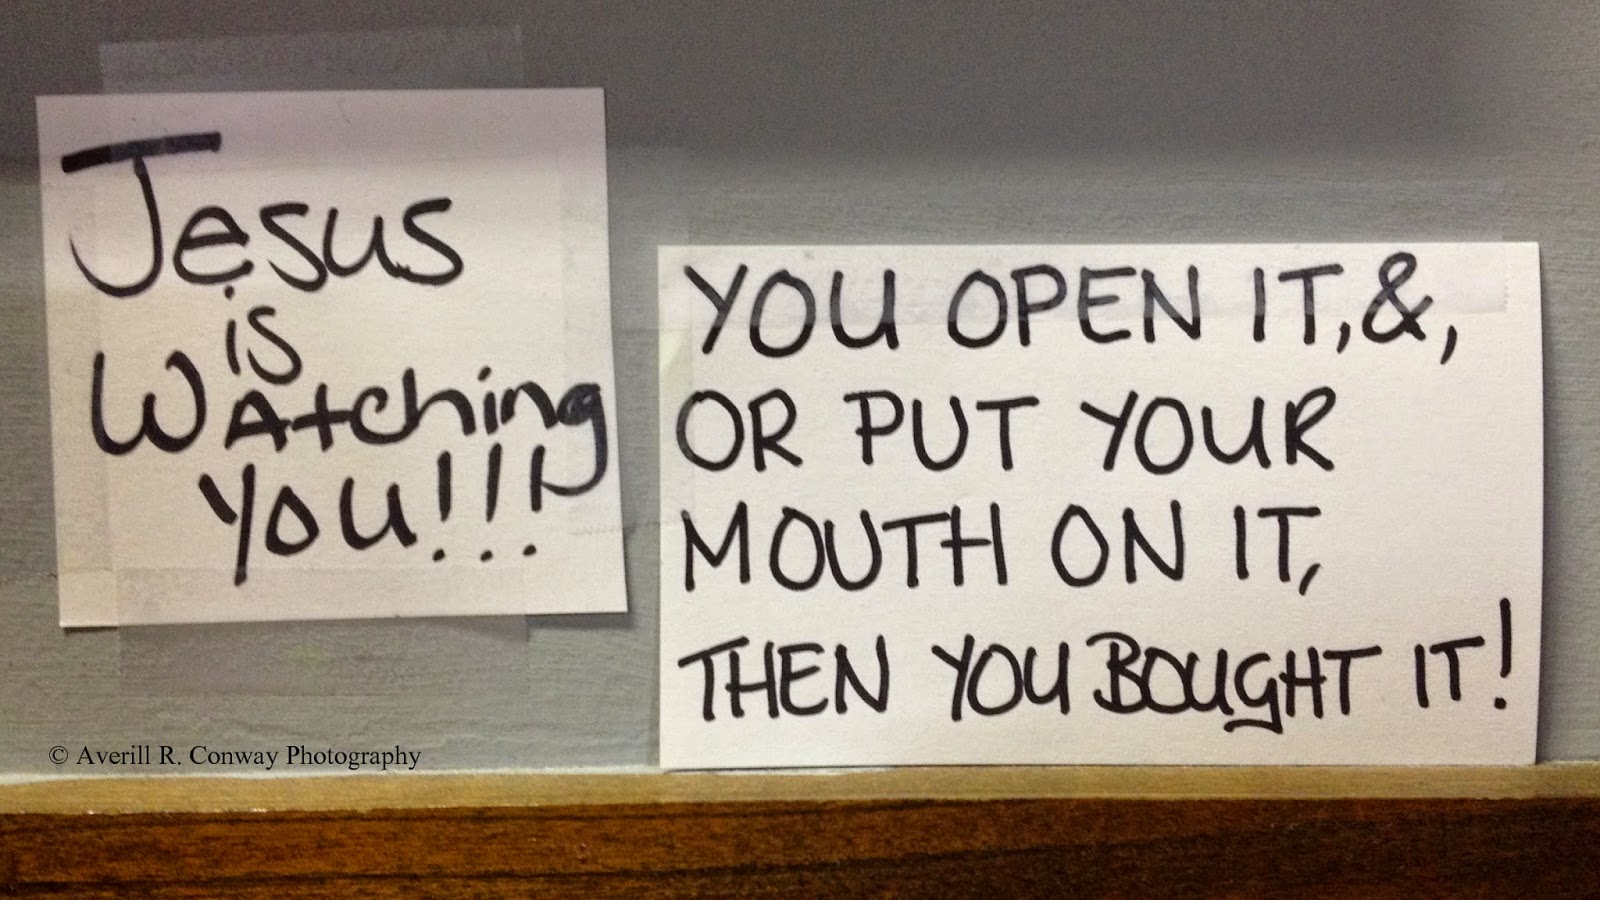 Jesus
is
WAtching
YOU!!!
YOU OPEN IT,&,
OR PUT YOUR
MOUTH ON IT,
THEN YOU BOUGHT IT!
© Averill R. Conway Photography